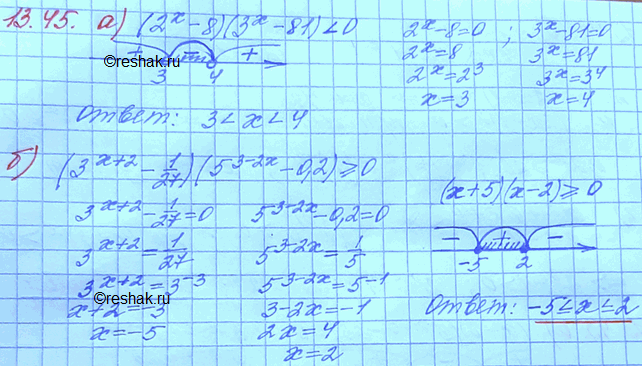 13.45. а) (2^x - 8)(3^x - 81) < 0
2^x - 8 = 0 ; 3^x - 81 = 0
2^x = 8 3^x = 81
2^x = 2^3 3^x = 3^4
x = 3 x = 4
+ - +
©reshak.ru
3 4
Ответ: 3 < x < 4
б) (3^{x+2} - 1/27)(5^{3-2x} - 0,2) ⩾ 0
3^{x+2} - 1/27 = 0 5^{3-2x} - 0,2 = 0
3^{x+2} = 1/27 5^{3-2x} = 1/5
3^{x+2} = 3^{-3} 5^{3-2x} = 5^{-1}
©reshak.ru
x+2 = -3 3-2x = -1
x = -5 2x = 4
x = 2
(x+5)(x-2) ⩾ 0
- + -
-5 2
Ответ: -5 ≤ x ≤ 2